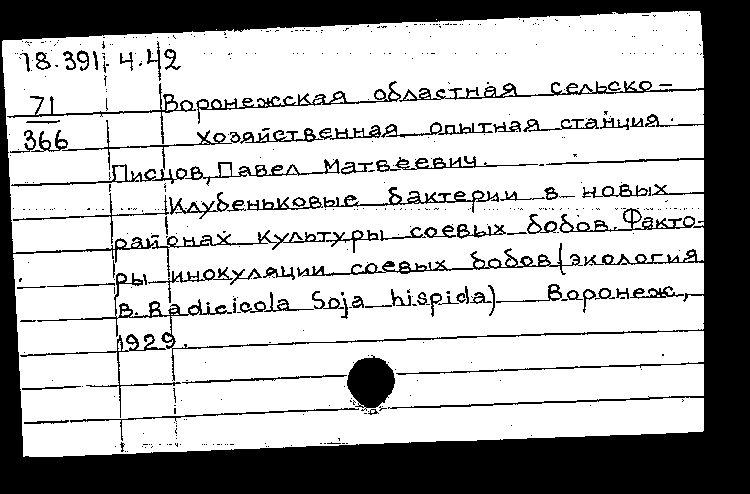 18.391.4.42
71
366
Воронежская областная сельско-
хозяйственная опытная станция.
Писцов, Павел Матвеевич.
Клубеньковые бактерии в новых
районах культуры соевых бобов. Факто-
ры инокуляции соевых бобов (экология
B. Radicicola Soja hispida) Воронеж,
1929.